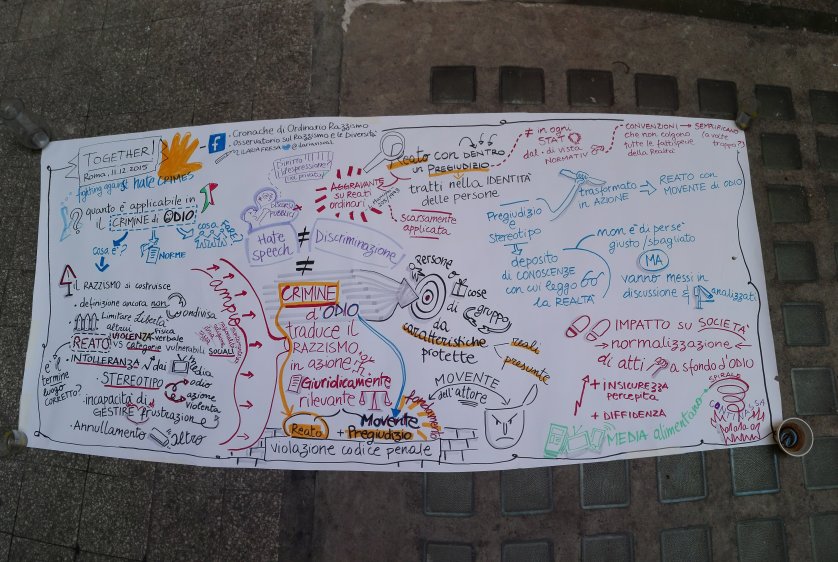 TOGETHER!
Roma, 11.12.2015
fighting against hate CRIME?
f
- Cronache di Ordinario Razzismo
- Osservatorio sul Razzismo e le Diversità
quanto è applicabile in
il CRIMINE di ODIO
cosa è?
NORME
cosa FARE?
IL RAZZISMO si costruisce
• definizione ancora non condivisa
• Limitare Libertà altrui
VIOLENZA fisica verbale
REATO vs categorie vulnerabili SOCIALI
è termine luogo CORRETTO?
• INTOLLERANZA dai media
odio
• STEREOTIPO
azione violenta
• incapacità di GESTIRE frustrazione
• Annullamento altro
campio
Diritto
d'espressione
vs privacy
DISCORSI PUBBLICI
Hate speech
≠
Discriminazione
≠
AGGRAVANTE
su Reati
ordinari
scarsamente
applicata
CRIMINE
d'ODIO
traduce il
RAZZISMO
in azione
Giuridicamente
rilevante
Reato
+
Movente
Pregiudizio
fondamento
violazione codice penale
Reato con DENTRO
un PREGIUDIZIO
tratti nella IDENTITÀ
delle persone
≠ in ogni
STATO
dal. di vista
NORMATIVO
CONVENZIONI
che non colgono
tutte le fattispecie
della Realtà
SEMPLIFICANO
(a volte
troppo?)
Persone o
cose
di gruppo
da
caratteristiche
protette
reali
presunte
MOVENTE
dell'attore
Pregiudizio
e
Stereotipo
trasformato
in AZIONE
REATO con
MOVENTE DI ODIO
deposito
di CONOSCENZE
con cui leggo
la REALTÀ
non è di per sè
giusto/sbagliato
MA
vanno messi in
discussione e analizzati
IMPATTO su SOCIETÀ
normalizzazione
di atti a sfondo d'ODIO
+ INSICUREZZA
percepita
+ DIFFIDENZA
SPIRALE
MEDIA alimentano